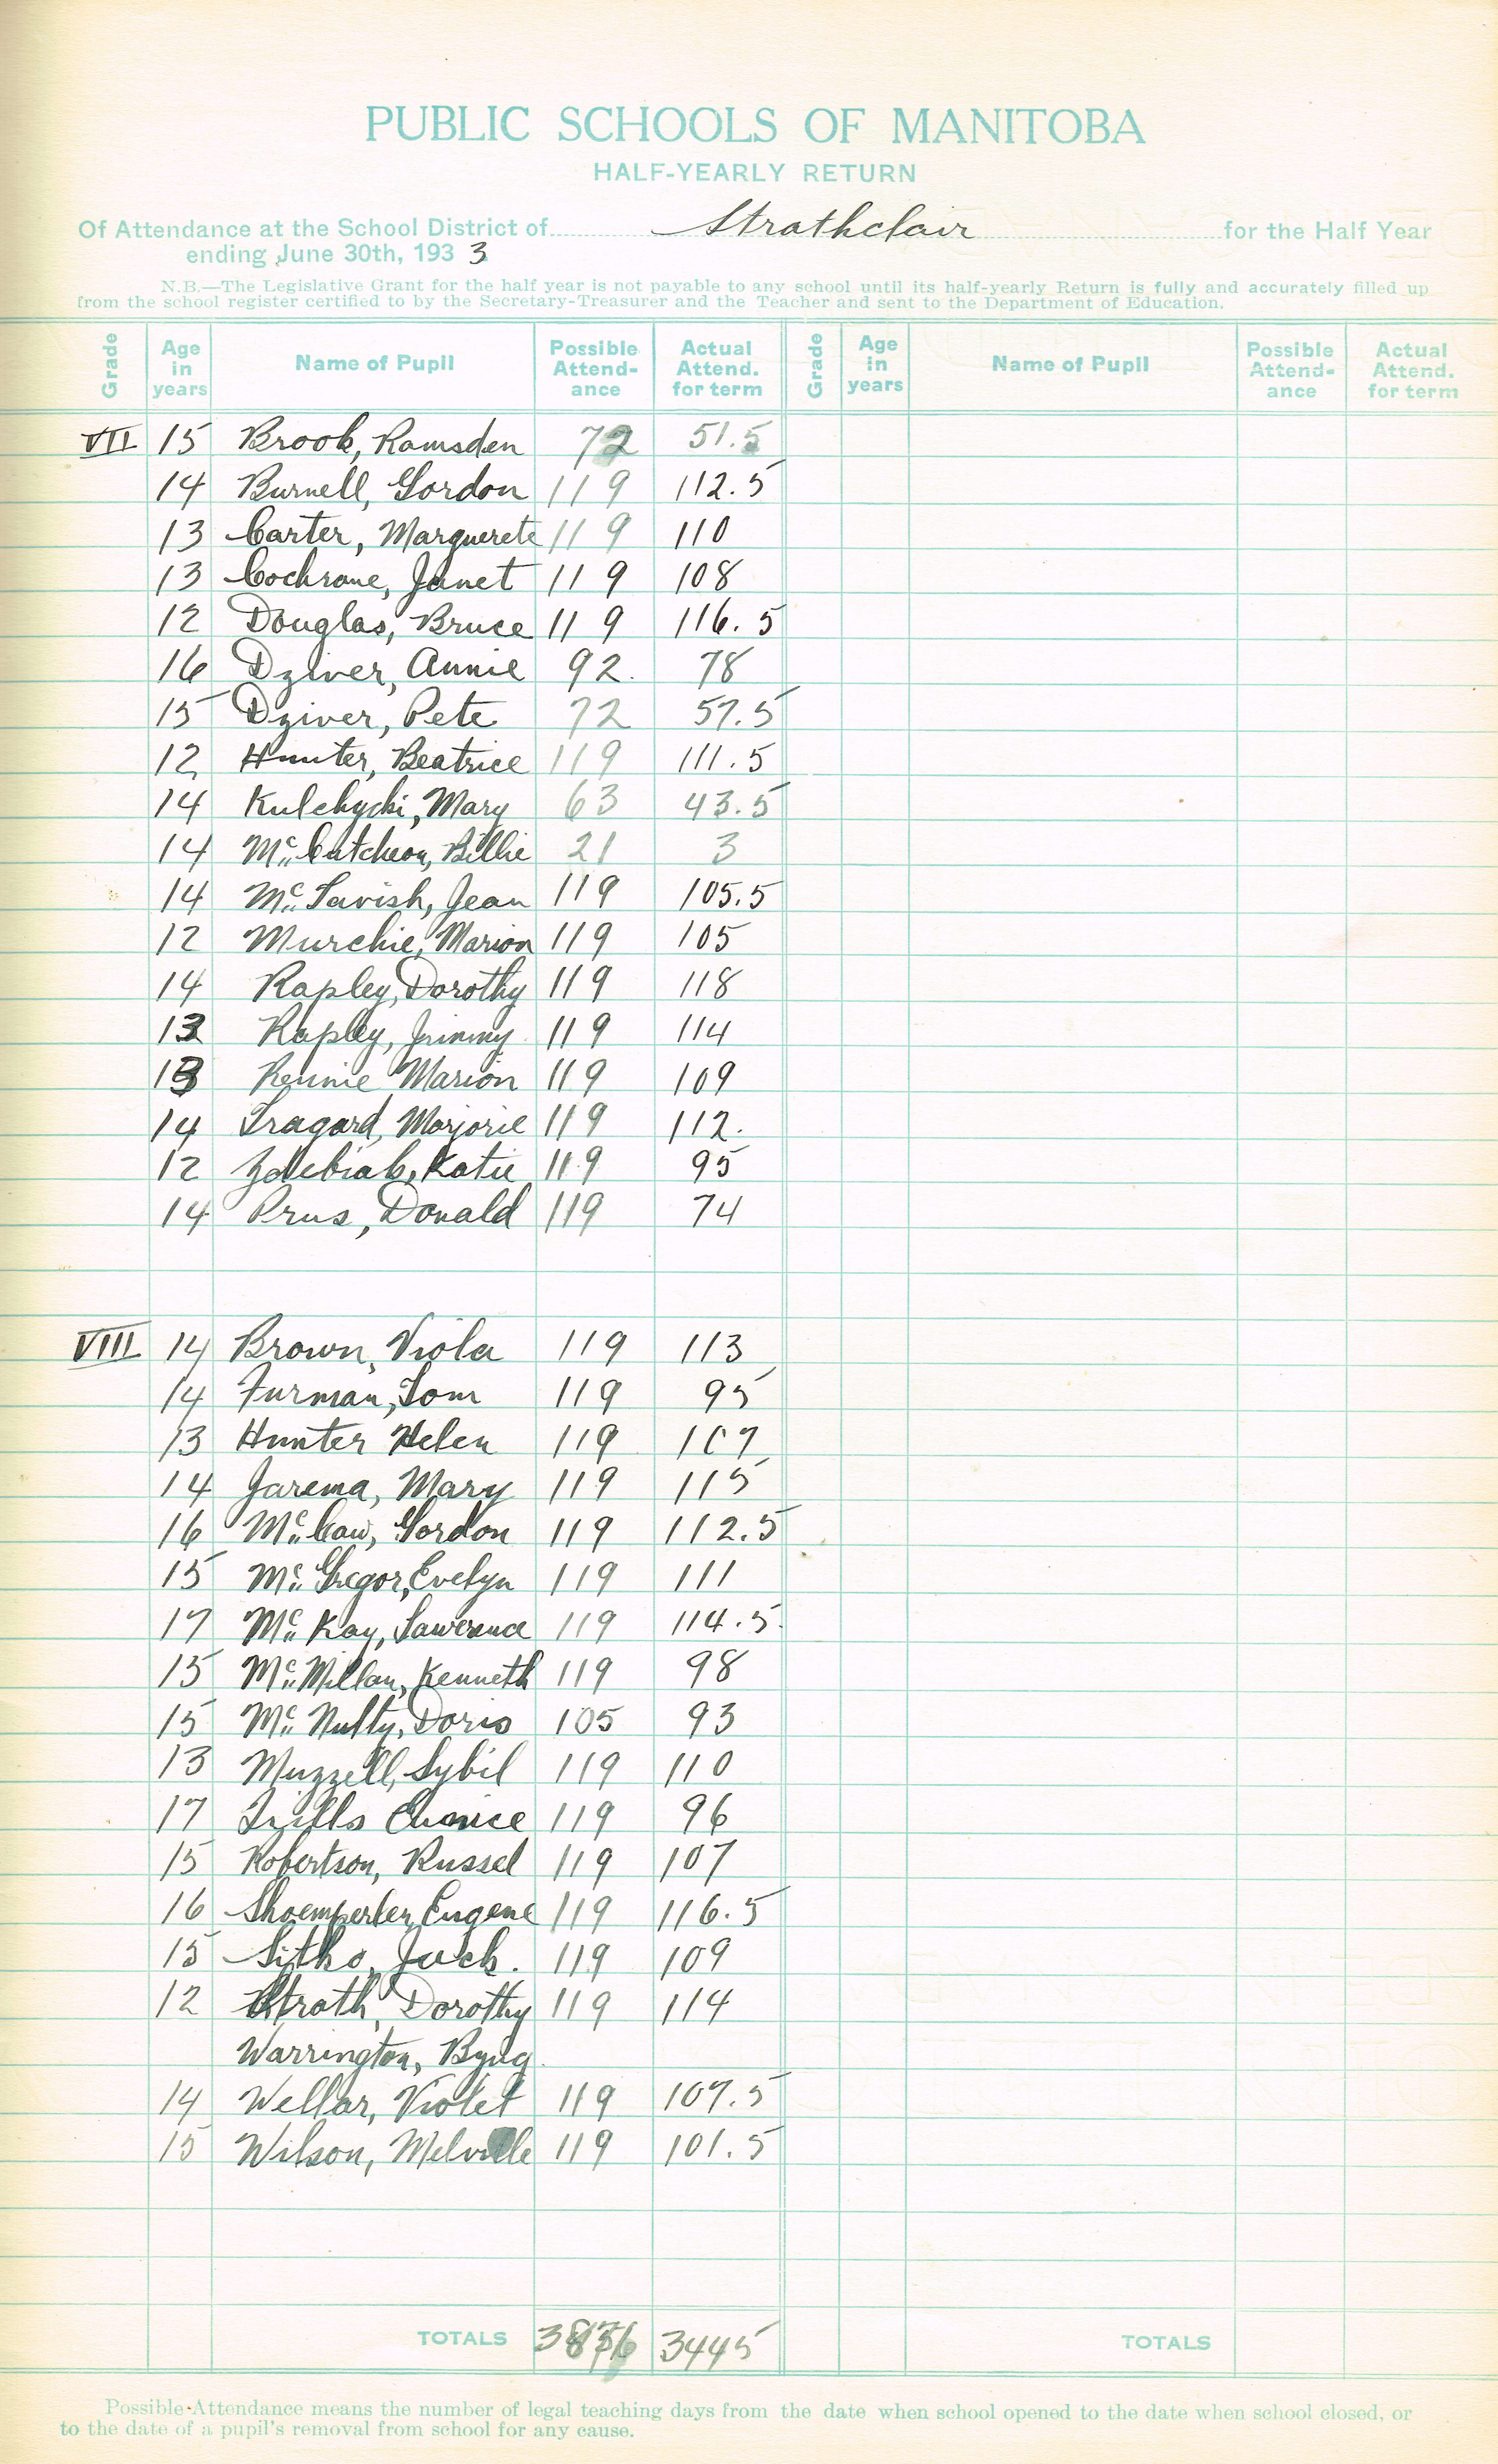 PUBLIC SCHOOLS OF MANITOBA
HALF-YEARLY RETURN
Of Attendance at the School District of Strathclair for the Half Year
ending June 30th, 1933
N.B.—The Legislative Grant for the half year is not payable to any school until its half-yearly Return is fully and accurately filled up
from the school register certified to by the Secretary-Treasurer and the Teacher and sent to the Department of Education.
Grade Age in years Name of Pupil Possible Attend-ance Actual Attend. for term Grade Age in years Name of Pupil Possible Attend-ance Actual Attend. for term
VII 15 Brook, Ramsden 72 51.5
14 Burnell, Gordon 119 112.5
13 Carter, Marguerete 119 110
13 Cochrane, Janet 119 108
12 Douglas, Bruce 119 116.5
16 Dziver, Annie 92. 78
15 Dziver, Pete 72 57.5
12 Hunter, Beatrice 119 111.5
14 Kulchycki, Mary 63 43.5
14 McCutcheon, Billie 21 3
14 McTavish, Jean 119 105.5
12 Murchie, Marion 119 105
14 Rapley, Dorothy 119 118
13 Rapley, Jimmy 119 114
13 Rennie Marion 119 109
14 Tragard, Marjorie 119 112.
12 Zdebiak, Katie 119 95
14 Prus, Donald 119 74
VIII 14 Brown, Viola 119 113
14 Furman, Tom 119 95
13 Hunter Helen 119 107
14 Jarema, Mary 119 115
16 McCaw, Gordon 119 112.5
15 McGregor, Evelyn 119 111
17 McKay, Lawerence 119 114.5
15 McMillan, Kenneth 119 98
15 McNulty, Doris 105 93
13 Muzzell, Sybil 119 110
17 Eunice 119 96
15 Robertson, Russel 119 107
16 Shoemperlen, Eugene 119 116.5
15 Sitko, Jack. 119 109
12 Strath, Dorothy 119 114
Warrington, Byng
14 Wellar, Violet 119 107.5
15 Wilson, Melville 119 101.5
TOTALS 3445 TOTALS
Possible Attendance means the number of legal teaching days from the date when school opened to the date when school closed, or
to the date of a pupil's removal from school for any cause.